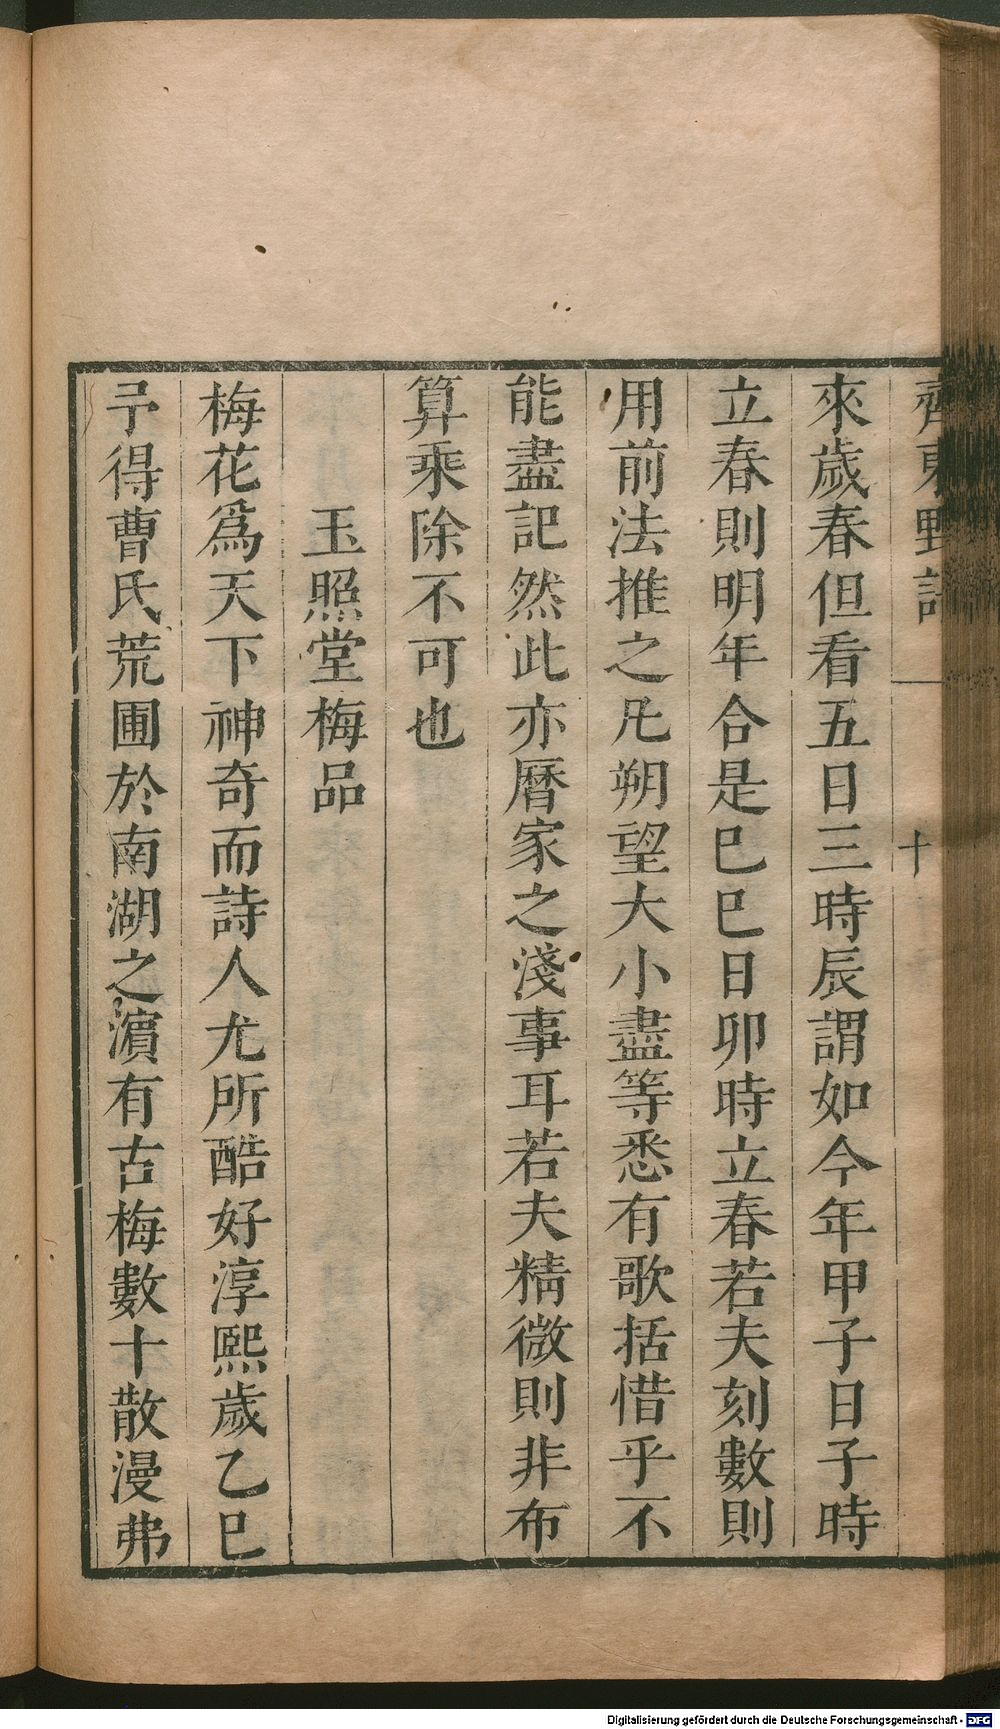 齊東野語
十
來歲春但看五日三時辰謂如今年甲子日子時
立春則明年合是巳巳日卯時立春若夫刻數則
用前法推之凡朔望大小盡等悉有歌括惜乎不
能盡記然此亦曆家之淺事耳若夫精微則非布
算乘除不可也
玉照堂梅品
梅花爲天下神奇而詩人尤所酷好淳熙歲乙巳
予得曹氏荒圃於南湖之濵有古梅數十散漫弗
Digitalisierung gefördert durch die Deutsche Forschungsgemeinschaft - DFG